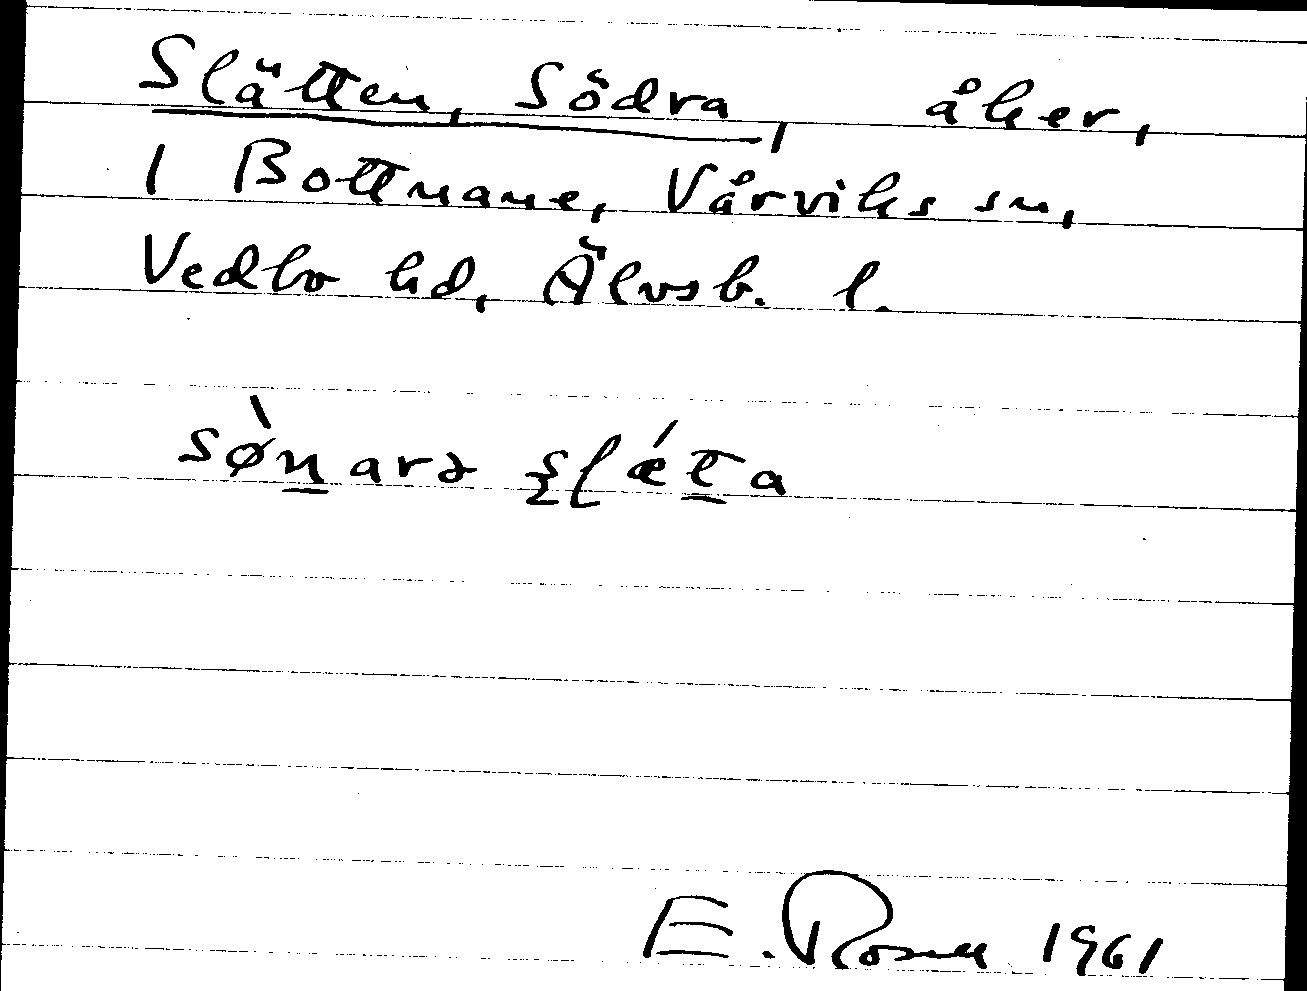 Slätten, Södra, åker,
1 Bottnane, Vårviks sn,
Vedbo hd, Älvsb. l.
sø̀n̲arə s̰lǽt̲a
E. Rosell 1961